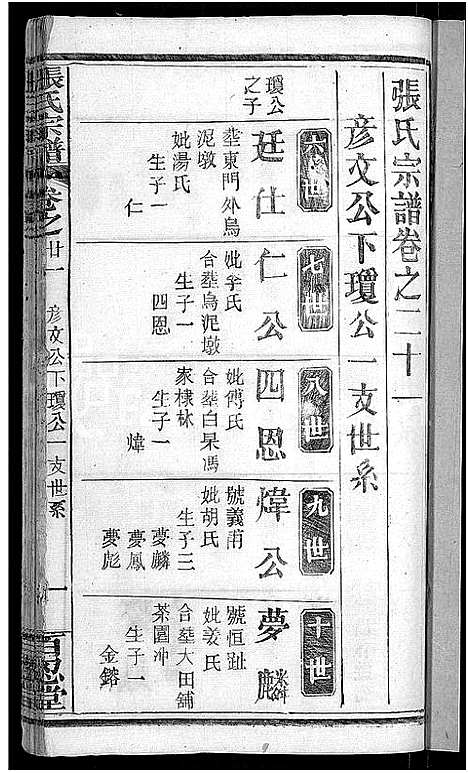 張氏宗譜卷之二十一
彦文公下瓊公一支世系
六世
瓊公之子
廷仕
葬東門外烏
泥墩
妣湯氏
生子一
仁
七世
仁公
妣李氏
合葬烏泥墩
生子一
四恩
八世
四恩
妣傅氏
合葬白杲馮
家棣林
生子一
煒
九世
煒公
號義甫
妣胡氏
生子三
夢麟
夢鳳
夢彪
十世
夢麟
號恒趾
妣姜氏
合葬大田舖
茶園冲
生子一
金鎔
張氏宗譜
卷之廿一
彦文公下瓊公一支世系
一
百忍堂